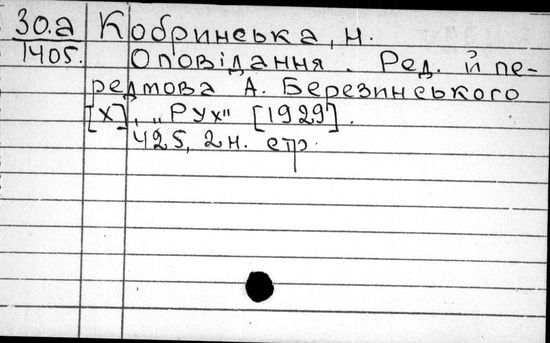 30.а Кобринська, Н.
1405. Оповідання. Ред. й пе-
редмова А. Березинського
[Х], „Рух" [1929].
425, 2 н. стр.